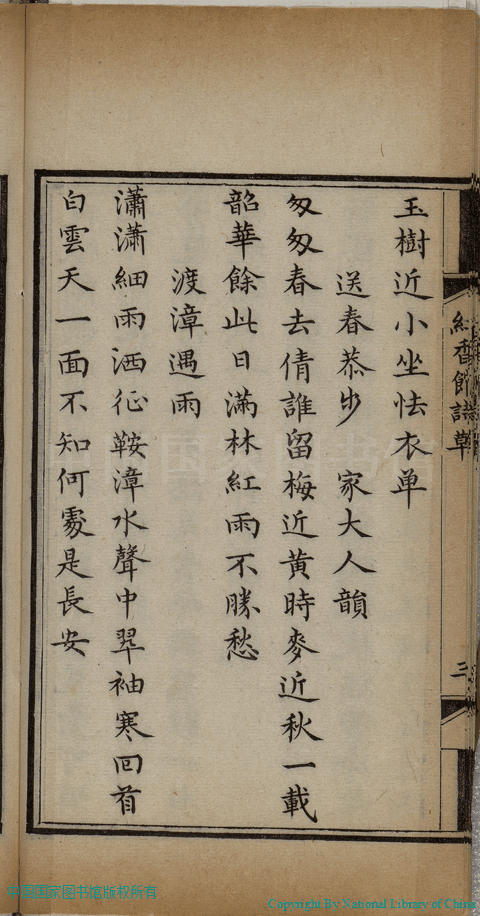 玉樹近小坐怯衣单
送春恭步　家大人韻
匆匆春去倩誰留梅近黄時麥近秋一載
韶華餘此日滿林紅雨不勝愁
渡漳遇雨
瀟瀟細雨洒征鞍漳水聲中翠袖寒回首
白雲天一面不知何處是長安
紅香館詩草
三
中国国家图书馆版权所有
Copyright By National Library of China